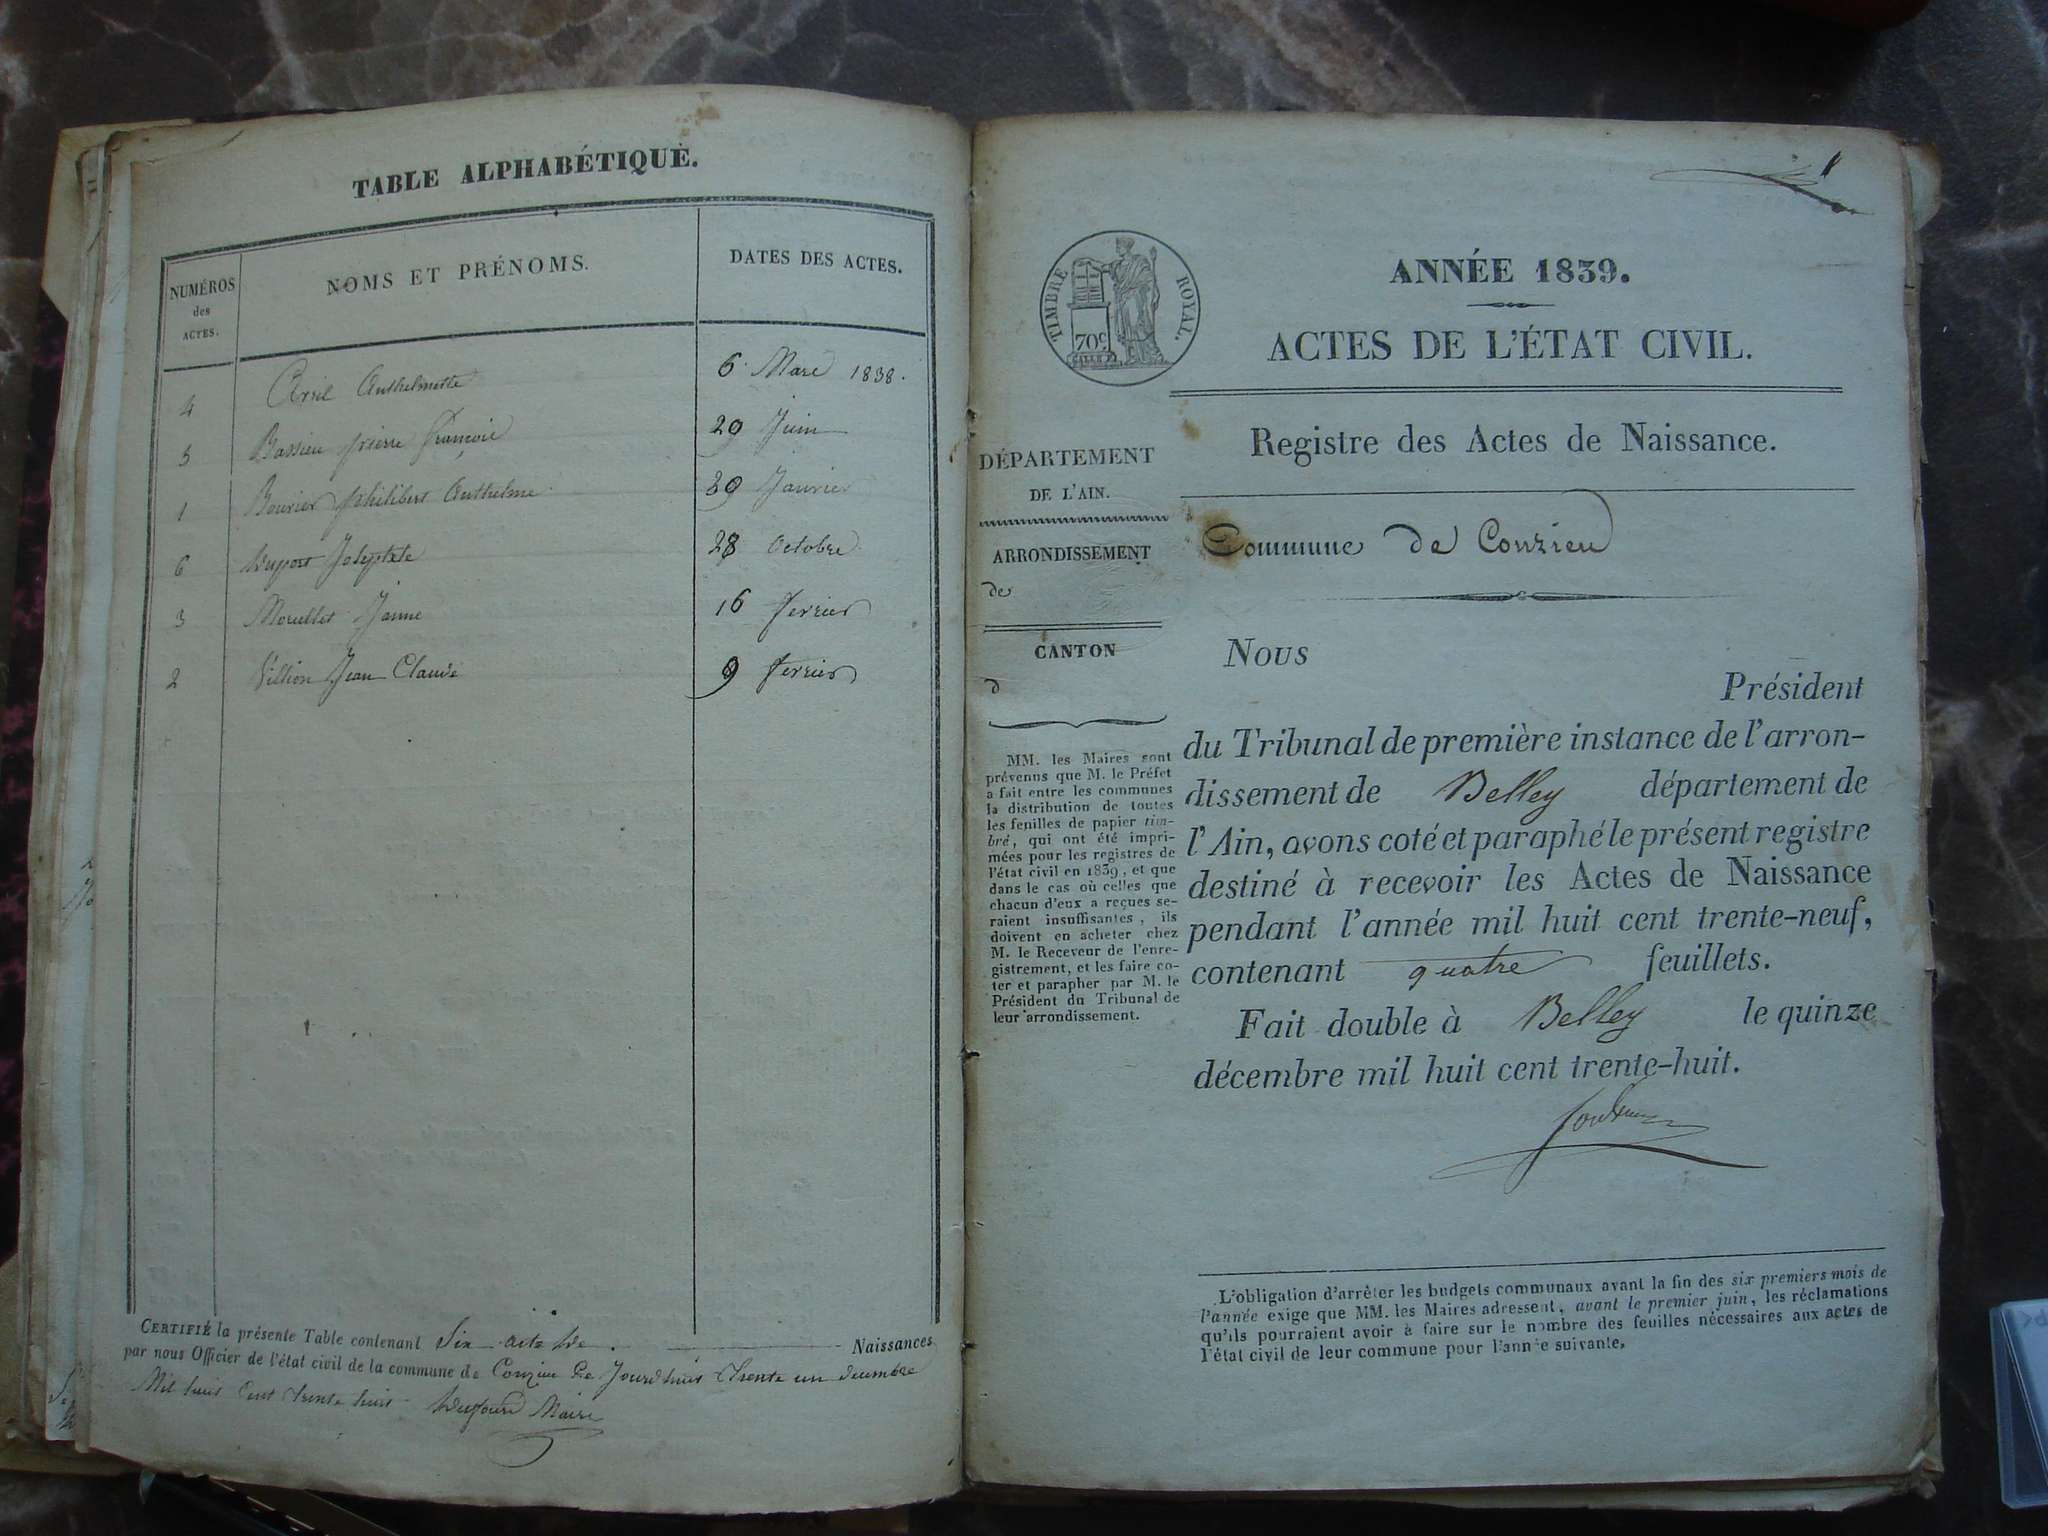 TABLE ALPHABÉTIQUE.
NUMÉROS des ACTES.
NOMS ET PRÉNOMS.
DATES DES ACTES.
4 Avril Anthelmette 6 Mars 1838.
5 Bassieu pierre françois 29 Juin
1 Bouvier philibert Anthelme 30 Janvier
6 Dupont Josephte 28 Octobre
3 Mouillet Janne 16 fevrier
2 Villion Jean Claude 9 fevrier
CERTIFIÉ la présente Table contenant Six acte de Naissances
par nous Officier de l'état civil de la commune de Conzieu Ce Jourd'huit Trente un decembre
Mil huit Cent trente huit Dufour Maire
1
TIMBRE ROYAL.
70c
ANNÉE 1839.
ACTES DE L'ÉTAT CIVIL.
Registre des Actes de Naissance.
Commune de Conzieu
DÉPARTEMENT
DE L'AIN.
ARRONDISSEMENT
de
CANTON
d
MM. les Maires sont
prévenus que M. le Préfet
a fait entre les communes
la distribution de toutes
les feuilles de papier tim-
bré, qui ont été impri-
mées pour les registres de
l'état civil en 1839, et que
dans le cas où celles que
chacun d'eux a reçues se-
raient insuffisantes, ils
doivent en acheter chez
M. le Receveur de l'enre-
gistrement, et les faire co-
ter et parapher par M. le
Président du Tribunal de
leur arrondissement.
Nous
Président
du Tribunal de première instance de l'arron-
dissement de Belley département de
l'Ain, avons coté et paraphé le présent registre
destiné à recevoir les Actes de Naissance
pendant l'année mil huit cent trente-neuf,
contenant quatre feuillets.
Fait double à Belley le quinze
décembre mil huit cent trente-huit.
L'obligation d'arrêter les budgets communaux avant la fin des six premiers mois de
l'année exige que MM. les Maires adressent, avant le premier juin, les réclamations
qu'ils pourraient avoir à faire sur le nombre des feuilles nécessaires aux actes de
l'état civil de leur commune pour l'année suivante.